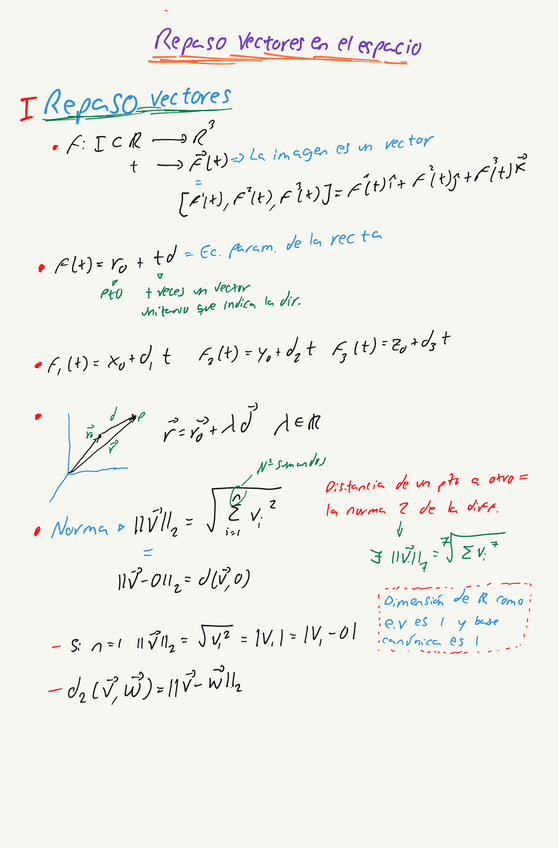 Repaso vectores en el espacio
I Repaso vectores
• F: I ⊂ ℝ → ℝ³
t → F⃗(t) ⇒ La imagen es un vector
=
[F¹(t), F²(t), F³(t)] = F¹(t)î + F²(t)ĵ + F³(t)k⃗
• f(t) = r₀ + td = Ec. param. de la recta
pto t veces un vector
unitario que indica la dir.
• F₁(t) = x₀ + d₁ t F₂(t) = y₀ + d₂ t F₃(t) = z₀ + d₃ t
• r⃗₀ d P r⃗ r⃗ = r⃗₀ + λd⃗ λ ∈ ℝ
Nº sumandos
• Norma ▹ ||v⃗||₂ = √(n Σ i=1 vᵢ²)
=
||v⃗ - 0||₂ = d(v⃗, 0)
Distancia de un pto a otro =
la norma 2 de la diff.
↓
∃ ||v⃗||₇ = ⁷√(Σ vᵢ⁷)
Dimensión de ℝ como
e.v es 1 y base
canónica es 1
- Si n=1 ||v⃗||₂ = √(v₁²) = |V₁| = |V₁ - 0|
- d₂(v⃗, w⃗) = ||v⃗ - w⃗||₂